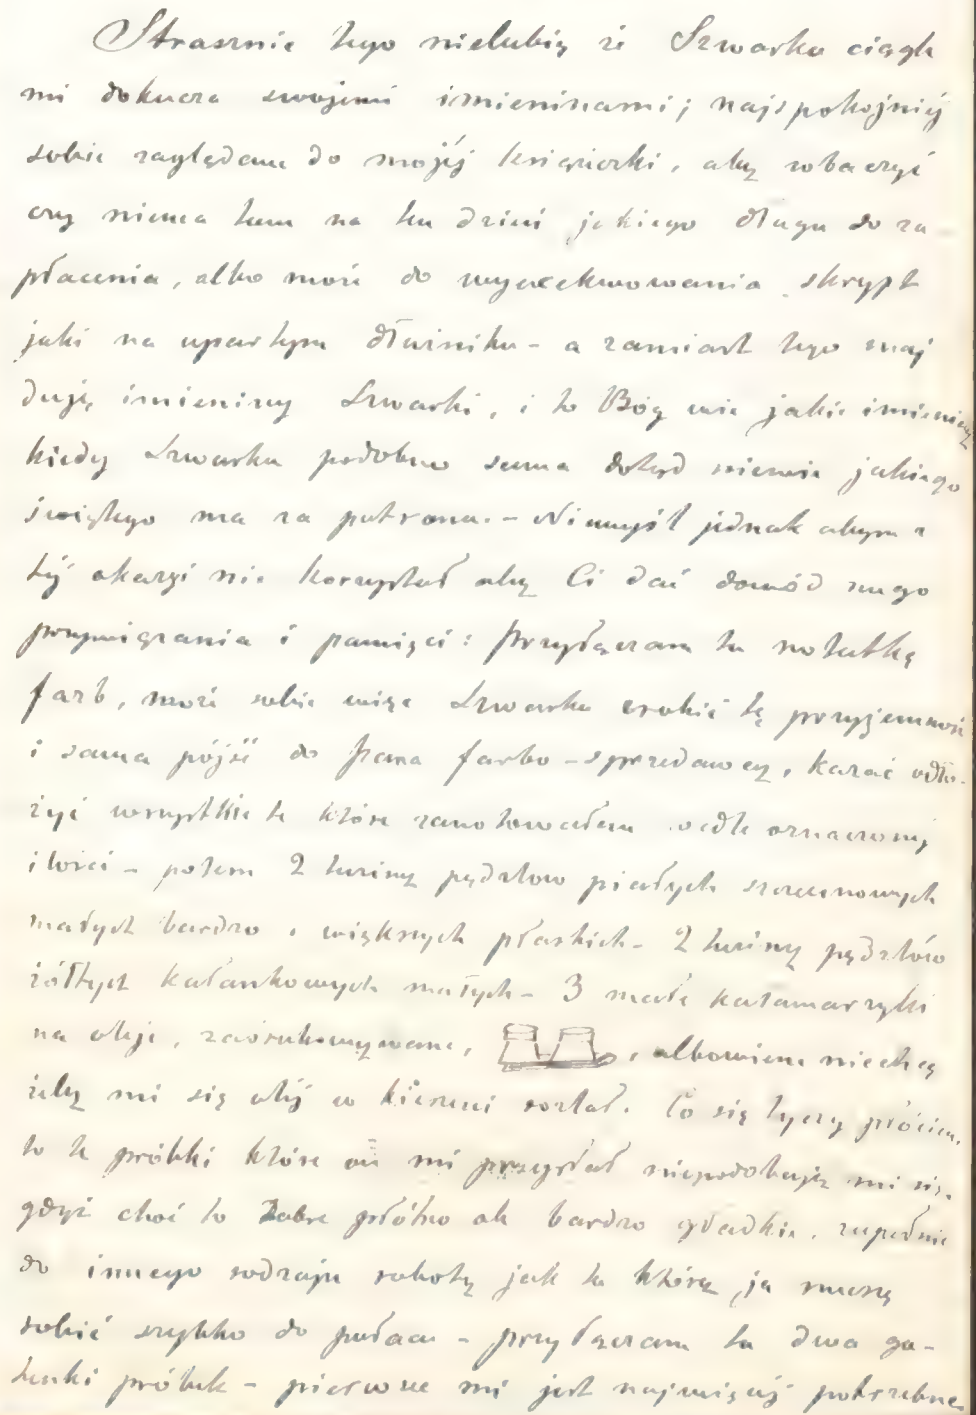 Strasznie tego nielubię że Szwarka ciągle
mi dokucza swojemi imieninami; najspokojniéj
sobie zaglądam do mojéj książeczki, aby zobaczyć
czy niema tam na ten dzień jakiego długu do za
płacenia, albo może do wyexekwowania skrypt
jaki na upartym dłużniku – a zamiast tego znaj
duję imieniny Szwarki, i to Bóg wie jakie imieniny
kiedy Szwarka podobno sama dotąd niewie jakiego
świętego ma za patrona. – Niemyśl jednak abym z
téj okazyi nie korzystał aby Ci dać dowód mego
przywiązania i pamięci: Przyłączam tu notatkę
farb, może sobie więc Szwarka zrobić tę przyjemność
i sama pójść do Pana farbo-sprzedawcy, kazać odło-
żyć wszystkie te które zanotowałem wedle oznaczonéj
ilości – potem 2 tuziny pędzlow białych szczecinowych
małych bardzo i większych płaskich – 2 tuziny pędzlów
żółtych kałankowych małych – 3 małe kałamarzyki
na oleje, zaśrubowywane, , albowiem niechcę
żeby mi się oléj w kieszeni rozlał. Co się tyczy płócien,
to te próbki które on mi przysłał niepodobają mi się,
gdyż choć to dobre płótno ale bardzo gładkie, zupełnie
do innego rodzaju roboty jak ta którą ja muszę
robić szybko do pałacu – przyłączam tu dwa ga-
tunki próbek – pierwsze mi jest najwięcéj potrzebne